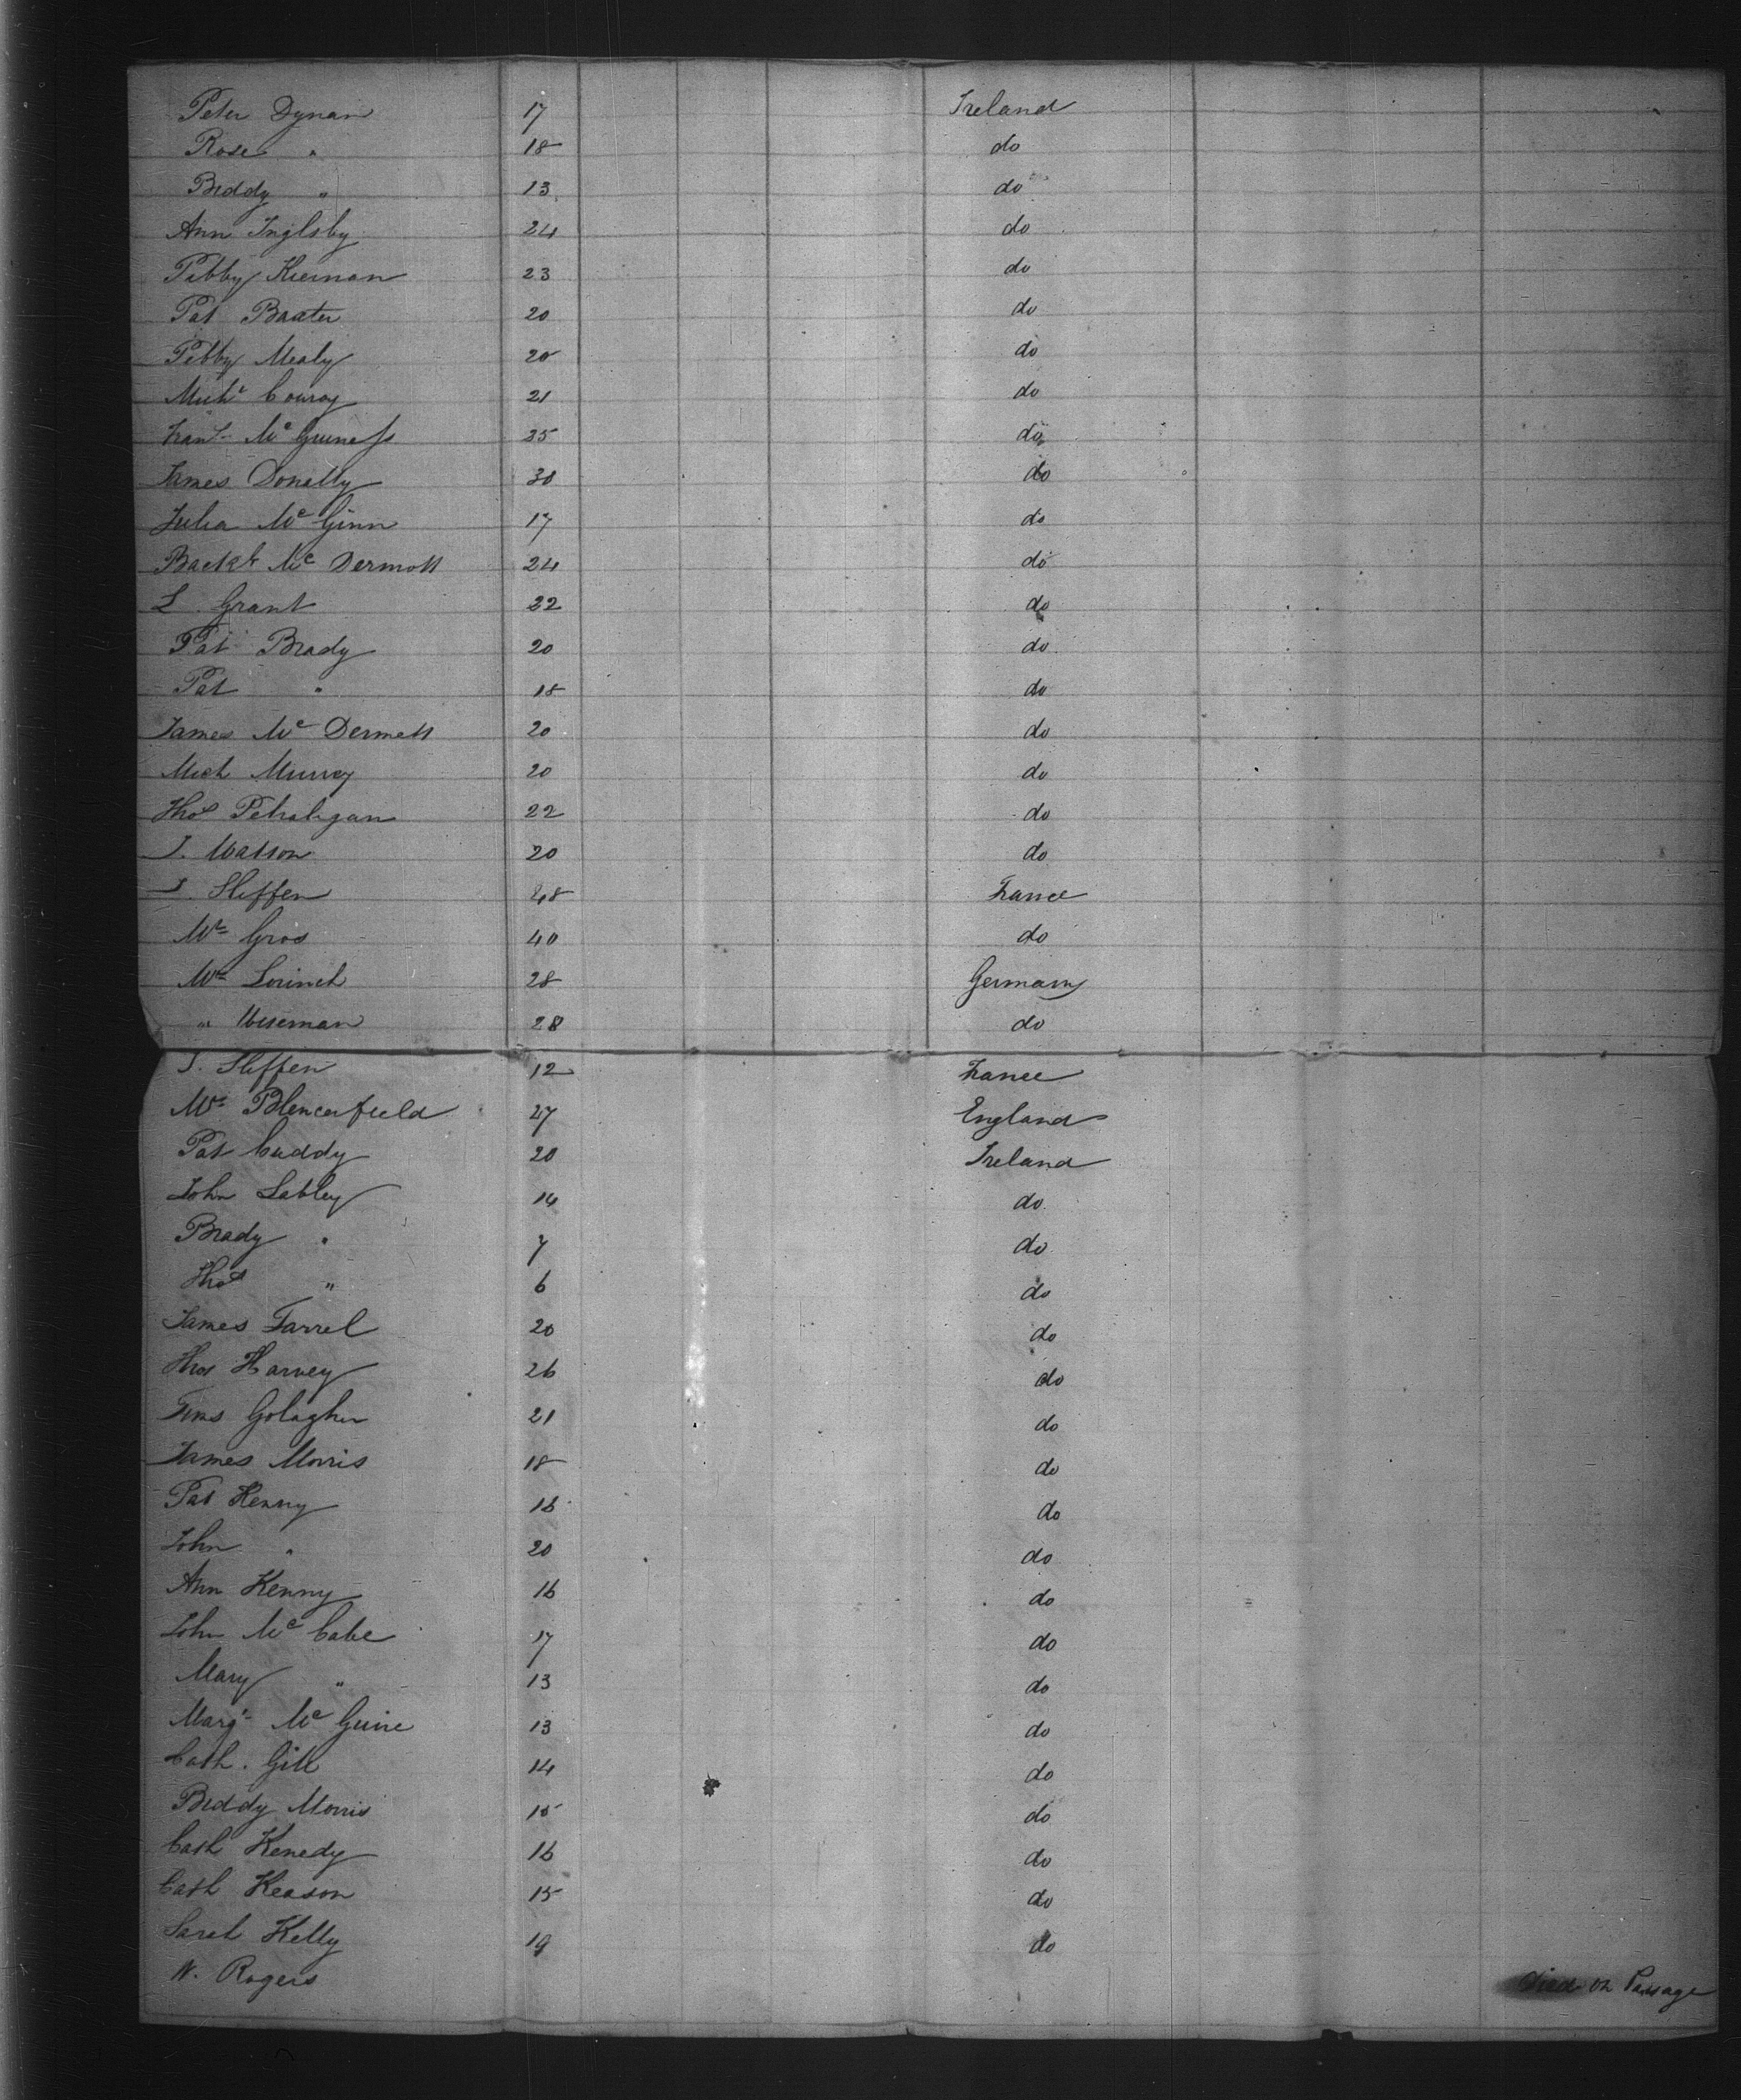 Peter Dynan 17 Ireland
Rose " 18 do
Biddy " 13 do
Ann Inglsby 24 do
Pibby Kiernan 23 do
Pat Baxter 20 do
Pibby Mealy 20 do
Michl Conroy 21 do
Frans Mc Guiness 25 do
James Donelly 30 do
Julia Mc Ginn 17 do
Mc Dermott 24 do
L. Grant 22 do
Pat Brady 20 do
Pat " 18 do
James Mc Dermott 20 do
Mich Murray 20 do
Thos 22 do
J. Watson 20 do
J. Steffen 48 France
Mrs Gros 40 do
Mrs Lorinch 28 Germany
" Wiseman 28 do
J. Steffen 12 France
Mrs Blencerfield 27 England
Pat Cuddy 20 Ireland
John Lebley 14 do
Brady " 7 do
Thos " 6 do
James Farrel 20 do
Thos Harvey 26 do
Golagher 21 do
James Morris 18 do
Pat Kenny 16 do
John " 20 do
Ann Kenny 16 do
John Mc Cabe 17 do
Mary " 13 do
Margt Mc Guire 13 do
Cath. Gill 14 do
Biddy Morris 15 do
Cath Kenedy 16 do
Cath Keason 15 do
Sarah Kelly 19 do
W. Rogers Died on Passage